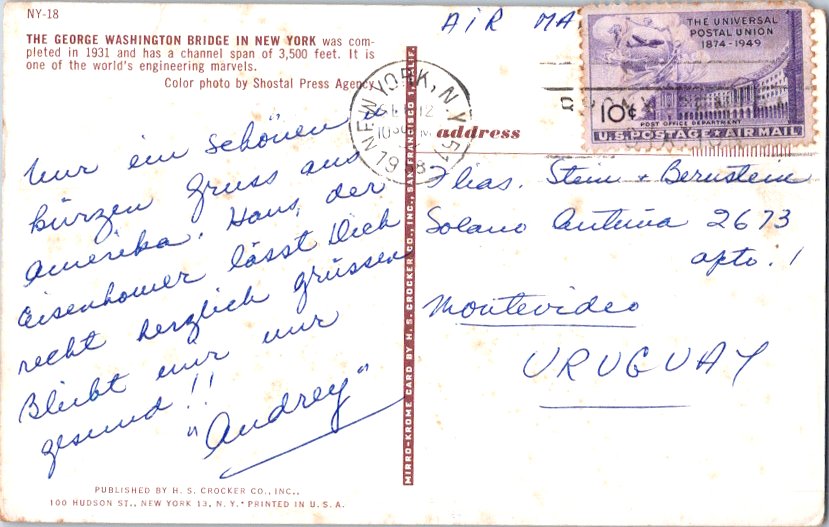 NY-18
THE GEORGE WASHINGTON BRIDGE IN NEW YORK was com-
pleted in 1931 and has a channel span of 3,500 feet. It is
one of the world's engineering marvels.
Color photo by Shostal Press Agency
Nur ein schönen u
kürzen Gruss aus
Amerika. Hans, der
Eisenhower lässt Dich
recht herzlich grüssen
Bleibt mir nur
gesund!!
"Audrey"
PUBLISHED BY H. S. CROCKER CO., INC.,
100 HUDSON ST., NEW YORK 13, N. Y. • PRINTED IN U. S. A.
MIRRO-KROME CARD BY H. S. CROCKER CO., INC., SAN FRANCISCO 1, CALIF.
AIR MA
NEW YORK, N.Y.
12
195
THE UNIVERSAL
POSTAL UNION
1874-1949
10¢
POST OFFICE DEPARTMENT
U.S. POSTAGE • AIR MAIL
address
Flias. Stein + Bernstein
Solano Antuña 2673
apto. 1
Montevideo
URUGUAY